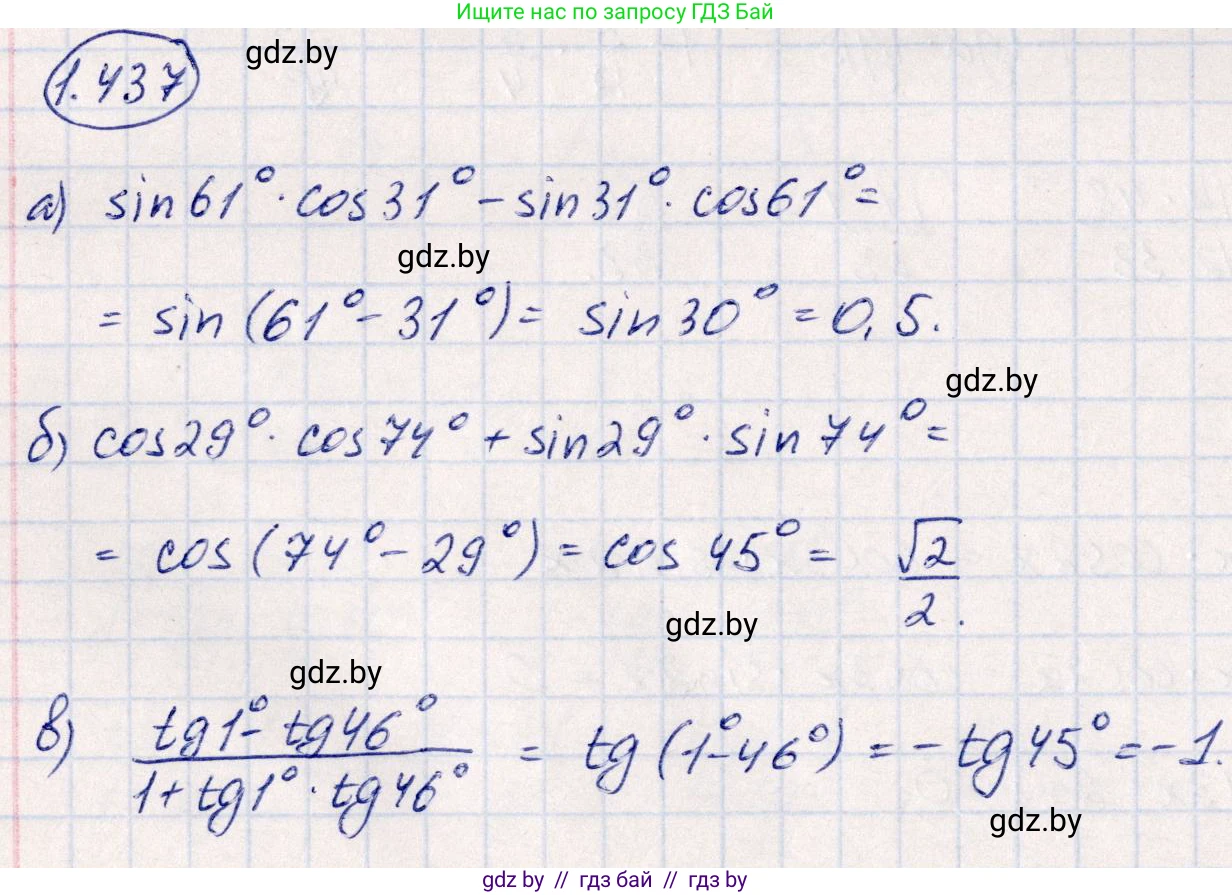 Ищите нас по запросу ГДЗ Бай
1.437
gdz.by
а) sin61°·cos31°-sin31°·cos61°=
gdz.by
= sin(61°-31°)= sin30°=0,5.
gdz.by
б) cos29°·cos74°+sin29°·sin74°=
= cos(74°-29°)=cos45°= √2/2.
gdz.by
gdz.by
в) (tg1°-tg46°)/(1+tg1°·tg46°) = tg(1°-46°)=-tg45°=-1.
gdz.by
gdz.by // гдз бай // gdz.by